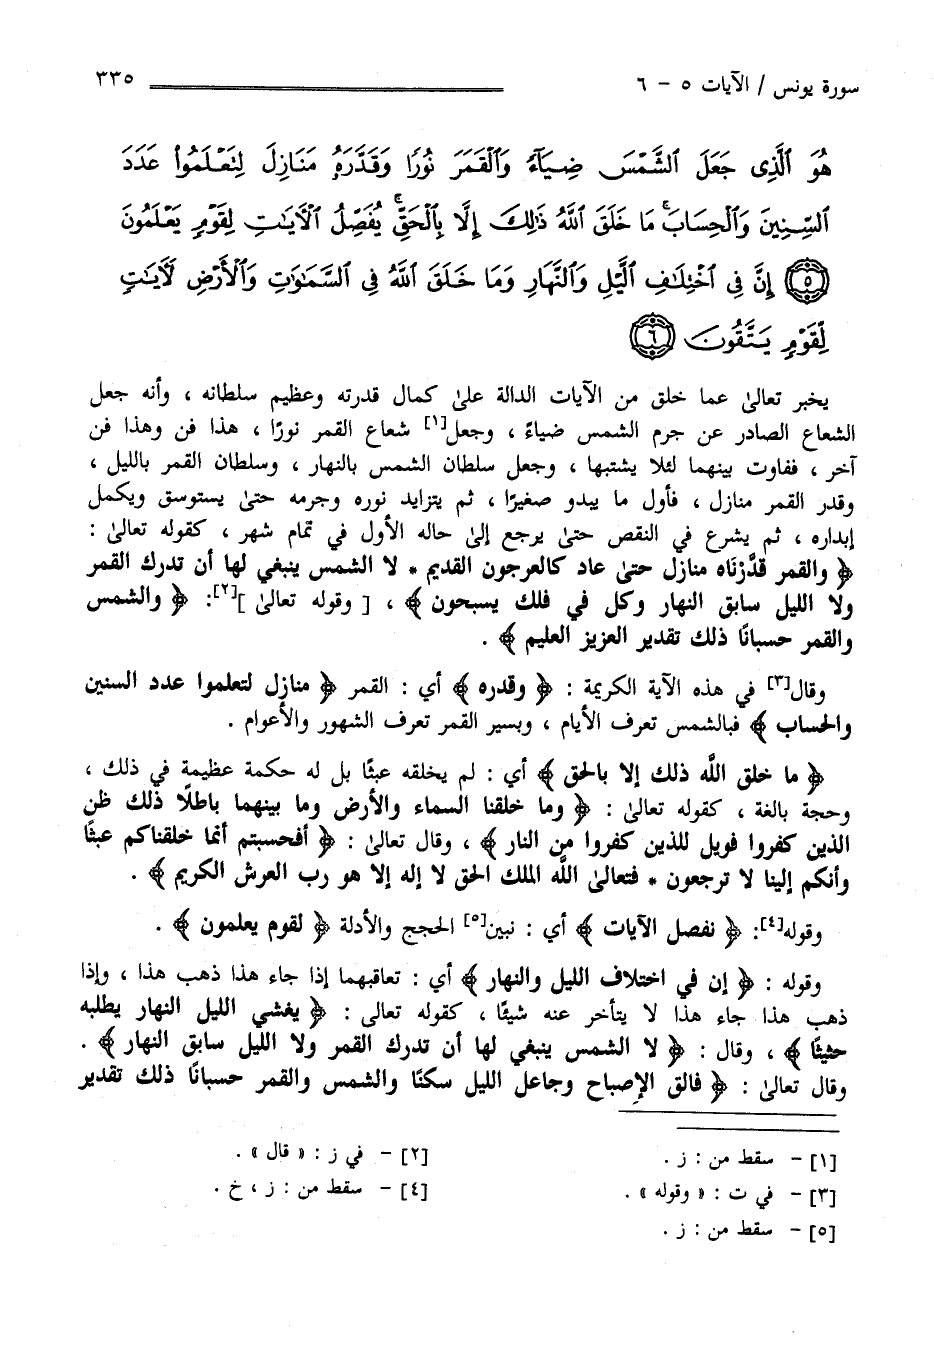 سورة يونس / الآيات ٥ - ٦
٣٣٥
هُوَ ٱلَّذِى جَعَلَ ٱلشَّمْسَ ضِيَآءً وَٱلْقَمَرَ نُورًا وَقَدَّرَهُۥ مَنَازِلَ لِتَعْلَمُوا۟ عَدَدَ
ٱلسِّنِينَ وَٱلْحِسَابَ ۚ مَا خَلَقَ ٱللَّهُ ذَٰلِكَ إِلَّا بِٱلْحَقِّ ۚ يُفَصِّلُ ٱلْآيَٰتِ لِقَوْمٍ يَعْلَمُونَ
﴿٥﴾ إِنَّ فِى ٱخْتِلَٰفِ ٱلَّيْلِ وَٱلنَّهَارِ وَمَا خَلَقَ ٱللَّهُ فِى ٱلسَّمَٰوَٰتِ وَٱلْأَرْضِ لَآيَٰتٍ
لِّقَوْمٍ يَتَّقُونَ ﴿٦﴾
يخبر تعالىٰ عما خلق من الآيات الدالة علىٰ كمال قدرته وعظيم سلطانه ، وأنه جعل
الشعاع الصادر عن جرم الشمس ضياءً ، وجعل[١] شعاع القمر نورًا ، هذا فن وهذا فن
آخر ، ففاوت بينهما لئلا يشتبها ، وجعل سلطان الشمس بالنهار ، وسلطان القمر بالليل ،
وقدر القمر منازل ، فأول ما يبدو صغيرًا ، ثم يتزايد نوره وجرمه حتىٰ يستوسق ويكمل
إبداره ، ثم يشرع في النقص حتىٰ يرجع إلىٰ حاله الأول في تمام شهر ، كقوله تعالىٰ :
﴿ والقمر قدَّرْنَاه منازل حتىٰ عاد كالعرجون القديم * لا الشمس ينبغي لها أن تدرك القمر
ولا الليل سابق النهار وكل في فلك يسبحون ﴾ ، [ وقوله تعالىٰ ][٢]: ﴿ والشمس
والقمر حسبانًا ذلك تقدير العزيز العليم ﴾ .
وقال[٣] في هذه الآية الكريمة : ﴿ وقدره ﴾ أي : القمر ﴿ منازل لتعلموا عدد السنين
والحساب ﴾ فبالشمس تعرف الأيام ، وبسير القمر تعرف الشهور والأعوام .
﴿ ما خلق اللَّه ذلك إلا بالحق ﴾ أي : لم يخلقه عبثًا بل له حكمة عظيمة في ذلك ،
وحجة بالغة ، كقوله تعالىٰ : ﴿ وما خلقنا السماء والأرض وما بينهما باطلًا ذلك ظن
الذين كفروا فويل للذين كفروا من النار ﴾ ، وقال تعالىٰ : ﴿ أفحسبتم أنما خلقناكم عبثًا
وأنكم إلينا لا ترجعون * فتعالىٰ اللَّه الملك الحق لا إله إلا هو رب العرش الكريم ﴾ .
وقوله[٤]: ﴿ نفصل الآيات ﴾ أي : نبين[٥] الحجج والأدلة ﴿ لقوم يعلمون ﴾ .
وقوله : ﴿ إن في اختلاف الليل والنهار ﴾ أي : تعاقبهما إذا جاء هذا ذهب هذا ، وإذا
ذهب هذا جاء هذا لا يتأخر عنه شيئًا ، كقوله تعالى : ﴿ يغشي الليل النهار يطلبه
حثيثًا ﴾ ، وقال : ﴿ لا الشمس ينبغي لها أن تدرك القمر ولا الليل سابق النهار ﴾ .
وقال تعالىٰ : ﴿ فالق الإصباح وجاعل الليل سكنًا والشمس والقمر حسبانًا ذلك تقدير
[١] - سقط من : ز .
[٢] - في ز : « قال » .
[٣] - في ت : « وقوله » .
[٤] - سقط من : ز ، خ .
[٥] - سقط من : ز .